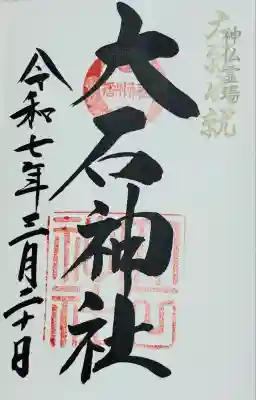 神仏霊場
大願成就
大石神社
令和七年三月二十日